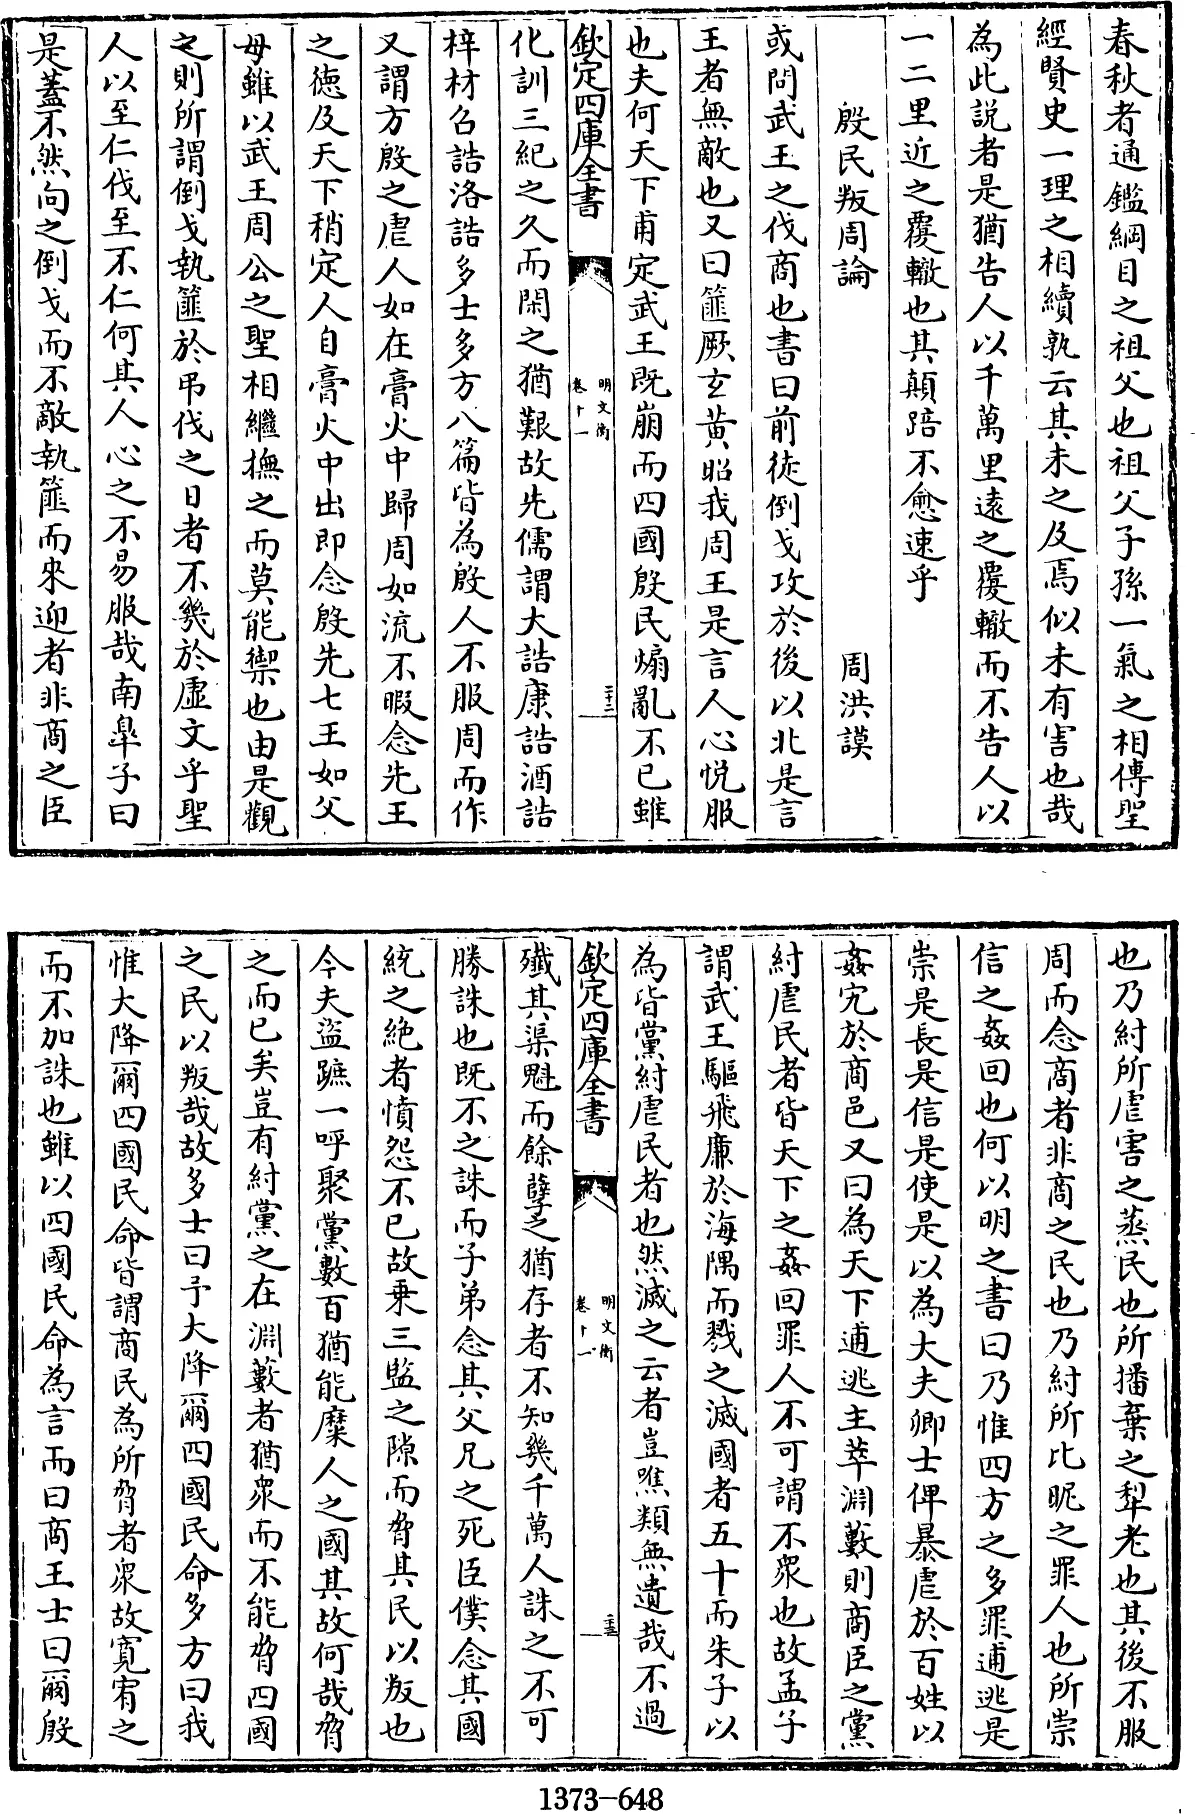 春秋者通鑑綱目之祖父也祖父子孫一氣之相傳聖
經賢史一理之相續孰云其未之及焉似未有害也哉
為此説者是猶告人以千萬里遠之覆轍而不告人以
一二里近之覆轍也其顛踣不愈速乎
殷民叛周論 周洪謨
或問武王之伐商也書曰前徒倒戈攻於後以北是言
王者無敵也又曰篚厥玄黄昭我周王是言人心悦服
也夫何天下甫定武王既崩而四國殷民煽亂不已雖
欽定四庫全書
明文衡
卷十一
三十二
化訓三紀之久而閑之猶艱故先儒謂大誥康誥酒誥
梓材召誥洛誥多士多方八篇皆為殷人不服周而作
又謂方殷之虐人如在膏火中歸周如流不暇念先王
之徳及天下稍定人自膏火中出即念殷先七王如父
母雖以武王周公之聖相繼撫之而莫能禦也由是觀
之則所謂倒戈執篚於弔伐之日者不幾於虚文乎聖
人以至仁伐至不仁何其人心之不易服哉南臯子曰
是蓋不然向之倒戈而不敵執篚而來迎者非商之臣
也乃紂所虐害之蒸民也所播棄之犂老也其後不服
周而念商者非商之民也乃紂所比昵之罪人也所崇
信之姦回也何以明之書曰乃惟四方之多罪逋逃是
崇是長是信是使是以為大夫卿士俾暴虐於百姓以
姦宄於商邑又曰為天下逋逃主萃淵藪則商臣之黨
紂虐民者皆天下之姦回罪人不可謂不衆也故孟子
謂武王驅飛廉於海隅而戮之滅國者五十而朱子以
為皆黨紂虐民者也然滅之云者豈噍類無遺哉不過
欽定四庫全書
明文衡
卷十一
三十三
殱其渠魁而餘孽之猶存者不知幾千萬人誅之不可
勝誅也既不之誅而子弟念其父兄之死臣僕念其國
統之絶者憤怨不已故乗三監之隙而脅其民以叛也
今夫盜蹠一呼聚黨數百猶能糜人之國其故何哉脅
之而已矣豈有紂黨之在淵藪者猶衆而不能脅四國
之民以叛哉故多士曰予大降爾四國民命多方曰我
惟大降爾四國民命皆謂商民為所脅者衆故寛宥之
而不加誅也雖以四國民命為言而曰商王士曰爾殷
1373-648